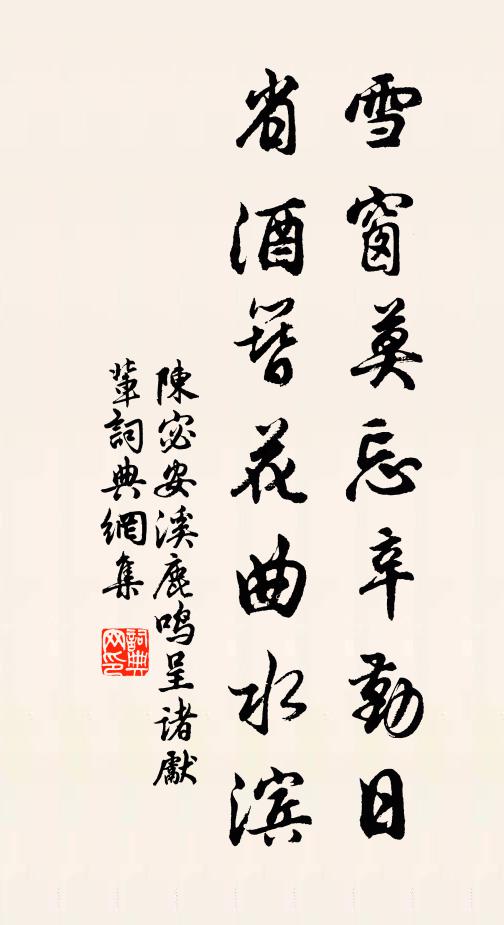 雪窗莫忘辛勤日
省酒簪花曲水滨
陳宓安溪鹿鸣呈诸獻
葷詞典網集
詞典网印